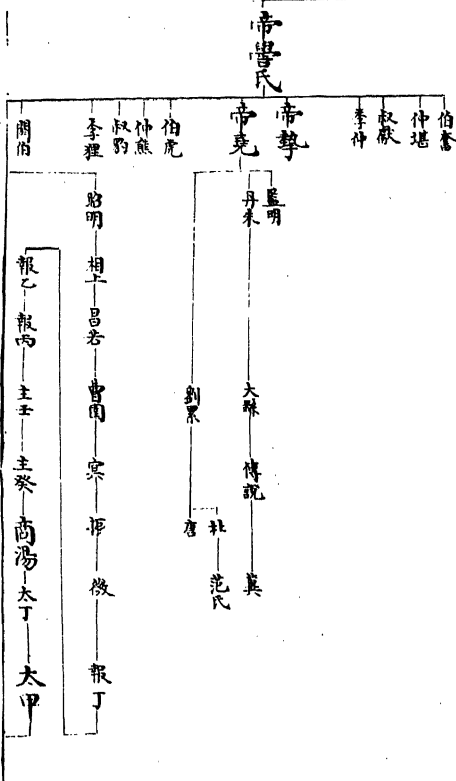 帝嚳氏
伯奮
仲堪
叔獻
季仲
帝摯
帝堯
伯虎
仲熊
叔豹
季狸
閼伯
監明
丹朱
大
傅說
劉累
杜
唐
范氏
昭明
相土
昌若
曹圉
冥
振
微
報丁
報乙
報丙
主壬
主癸
商湯
太丁
太甲